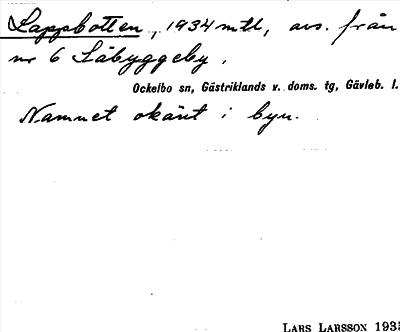 Lappbotten, 1934 mtl, avs. från
nr 6 Säbyggeby.
Ockelbo sn, Gästriklands v. doms. tg, Gävleb. l.
Namnet okänt i byn.
LARS LARSSON 1935